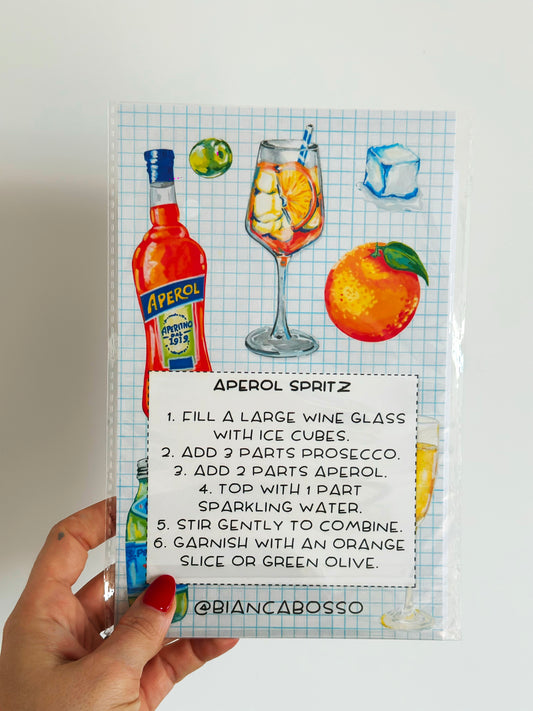 APEROL
APERITIVO
DAL
1919
APEROL SPRITZ
1. FILL A LARGE WINE GLASS
WITH ICE CUBES.
2. ADD 3 PARTS PROSECCO.
3. ADD 2 PARTS APEROL.
4. TOP WITH 1 PART
SPARKLING WATER.
5. STIR GENTLY TO COMBINE.
6. GARNISH WITH AN ORANGE
SLICE OR GREEN OLIVE.
@BIANCABOSSO